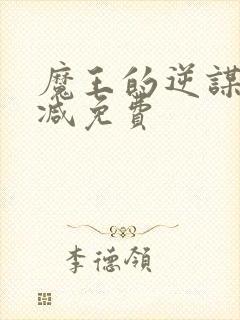 魔王的逆謀
减免費
李德領